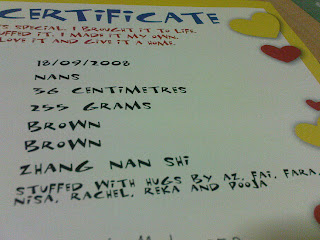 CERTIFICATE
S SPECIAL. I BROUGHT IT TO LIFE.
TUFFED IT. I MADE IT MY OWN.
LOVE IT AND GIVE IT A HOME.
18/09/2008
NANS
36 CENTIMETRES
255 GRAMS
BROWN
BROWN
ZHANG NAN SHI
STUFFED WITH HUGS BY AZ, FAI, FARA,
NISA, RACHEL, REKA AND POOJA